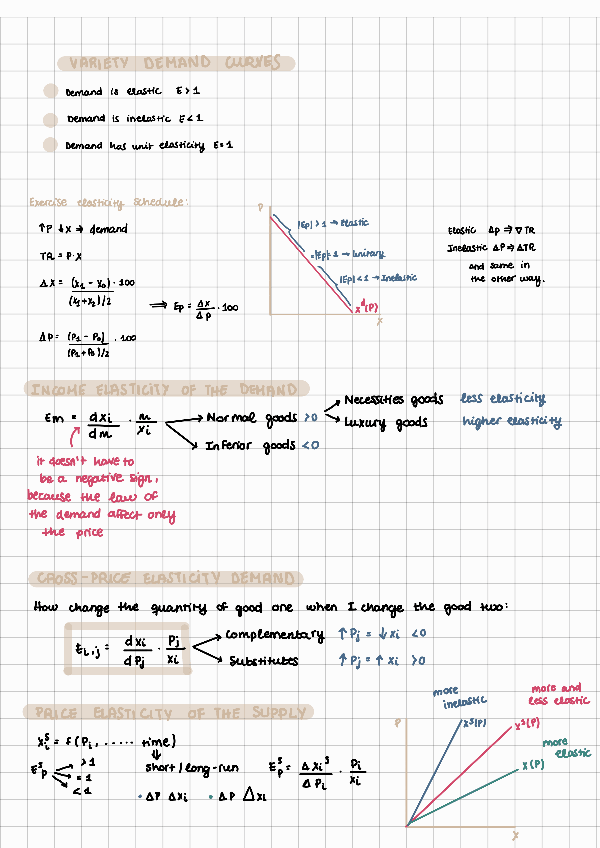 VARIETY DEMAND CURVES
Demand is elastic E>1
Demand is inelastic E<1
Demand has unit elasticity E=1
Exercise elasticity schedule:
↑P ↓X ⇒ demand
TR = P·X
ΔX = (X₁ - X₀) · 100
(X₁+X₂)/2
⟹ Ep = ΔX / ΔP · 100
ΔP = (P₁ - P₀) · 100
(P₁+P₀)/2
P
|Ep|>1 → Elastic
=|Ep|=1 → Unitary
|Ep|<1 → Inelastic
x^d(P)
X
Elastic ΔP ⇒ ∇TR
Inelastic ΔP ⇒ ΔTR
and same in
the other way.
INCOME ELASTICITY OF THE DEMAND
Em = dxi/dm · m/xi
Normal goods >0
Inferior goods <0
Necessities goods less elasticity
Luxury goods higher elasticity
it doesn't have to
be a negative sign,
because the law of
the demand affect only
the price
CROSS-PRICE ELASTICITY DEMAND
How change the quantity of good one when I change the good two:
Ei,j = dxi/dPj · Pj/xi
Complementary ↑Pj = ↓xi <0
Substitutes ↑Pj = ↑xi >0
PRICE ELASTICITY OF THE SUPPLY
xi^s = f(Pi, ..... time)
short/long-run
E^s p >1
=1
<1
E^s p = Δxi^s/ΔPi · Pi/xi
• ΔP Δxi • ΔP Δxi
more
inelastic
more and
less elastic
P
x^s(P)
x^s(P)
more
elastic
x(P)
X